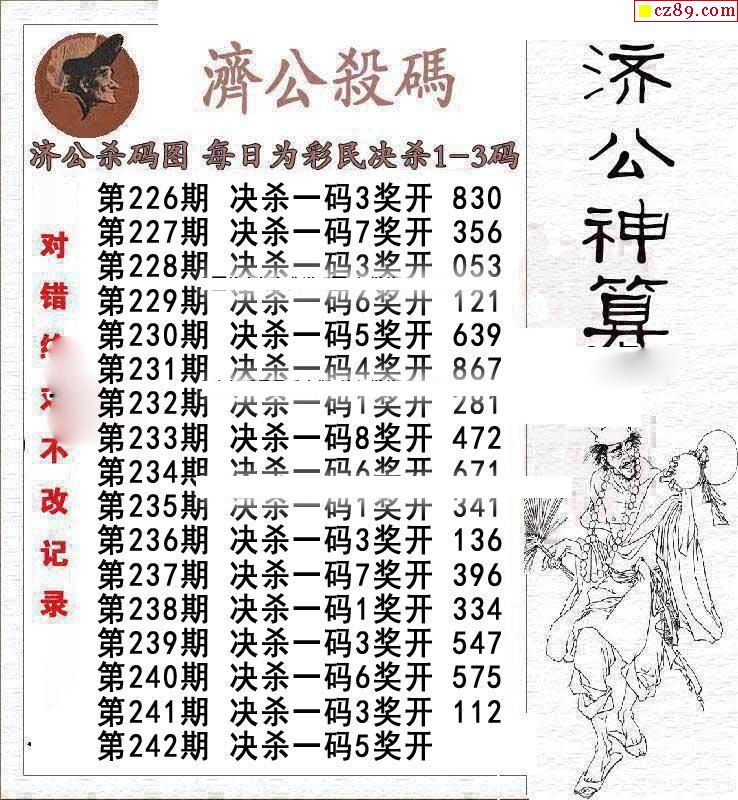 cz89.com
濟公殺碼
济公杀码图 每日为彩民决杀1-3码
第226期 决杀一码3奖开 830
第227期 决杀一码7奖开 356
第228期 决杀一码3奖开 053
第229期 决杀一码6奖开 121
第230期 决杀一码5奖开 639
第231期 决杀一码4奖开 867
第232期 决杀一码1奖开 281
第233期 决杀一码8奖开 472
第234期 决杀一码6奖开 671
第235期 决杀一码1奖开 341
第236期 决杀一码3奖开 136
第237期 决杀一码7奖开 396
第238期 决杀一码1奖开 334
第239期 决杀一码3奖开 547
第240期 决杀一码6奖开 575
第241期 决杀一码3奖开 112
第242期 决杀一码5奖开
对错不改记录
济公神算